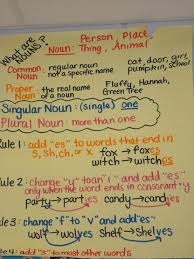 What are Nouns?
Person, Place
Noun: Thing, Animal
Common Noun - regular noun not a specific name
cat, door, girl, pumpkin, school
Proper Noun - the real name of a noun
Fluffy, Hannah, Green Tree
Singular Noun: (single) one
Plural Noun: more than one
ule 1: add "es" to words that end in
s, sh, ch, or x fox → foxes
witch → witches
ule 2: change "y" to an "i" and add "es"
only when the word ends in consonant + y
party → parties candy → candies
ule 3: change "f" to "v" and add "es"
wolf → wolves shelf → Shelves
ule 4: add "s" to most other words